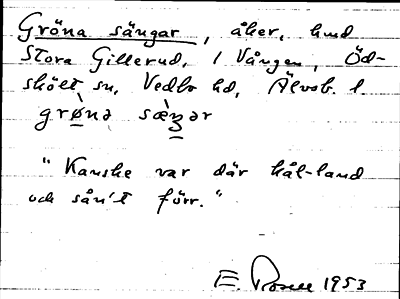 Gröna sängar, åker, hmd
Stora Gillerud, / Vången, Öd-
skölt sn, Vedbo hd, Älvsb. l.
grønə sæŋər
"Kanske var där hål-land
och sån't förr."
E. Rosell 1953